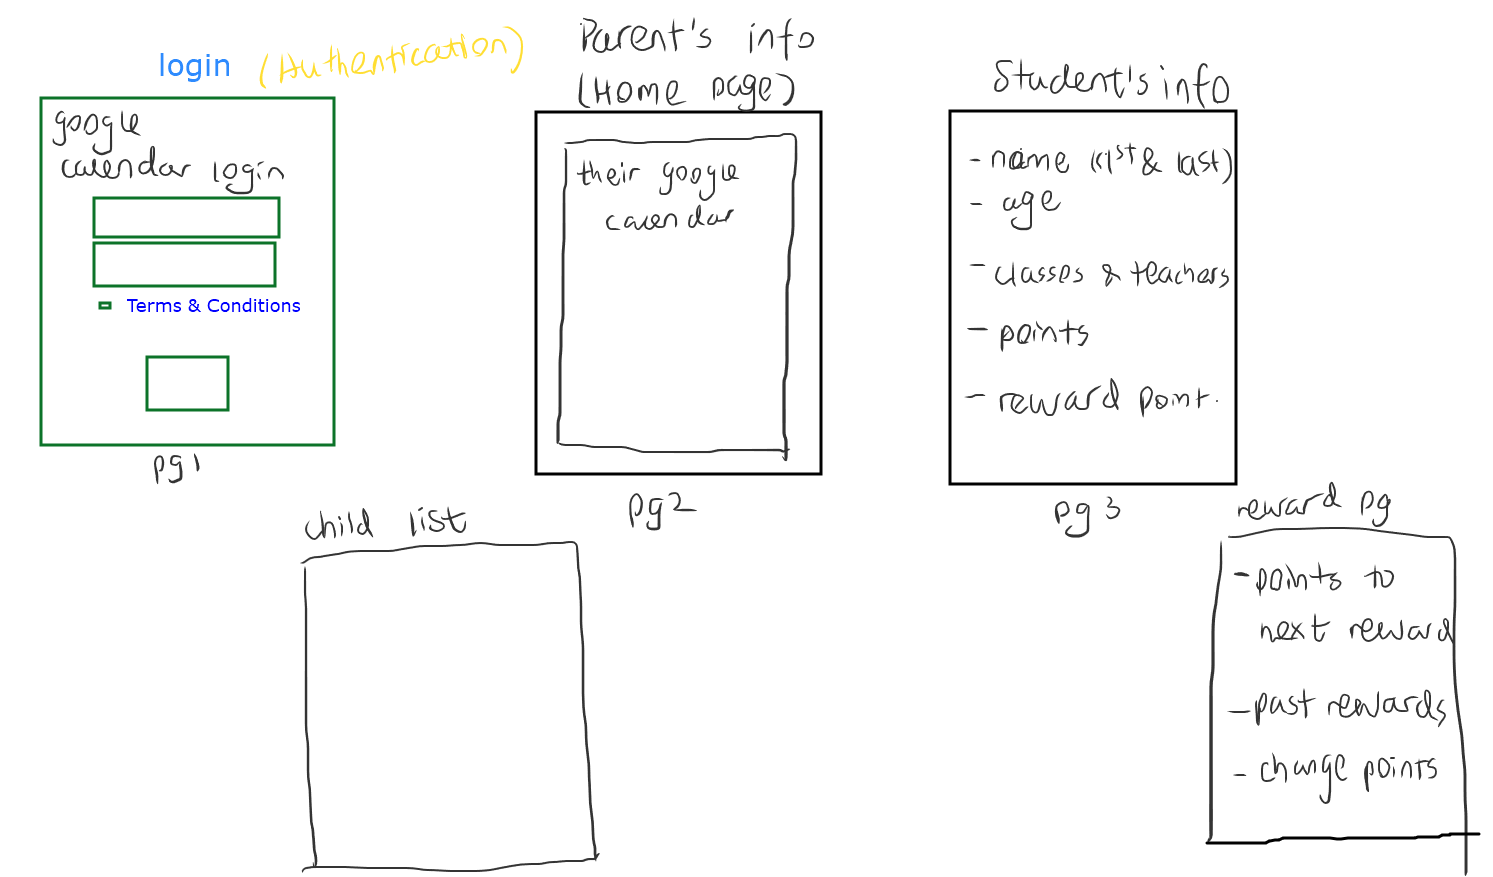 login (Authentication)
google
calendar login
Terms & Conditions
pg1
Parent's info
(Home page)
their google
calendar
pg2
Student's info
- name (1st & last)
- age
- classes & teachers
- points
- reward point.
pg 3
child list
reward pg
- points to
next reward
- past rewards
- change points